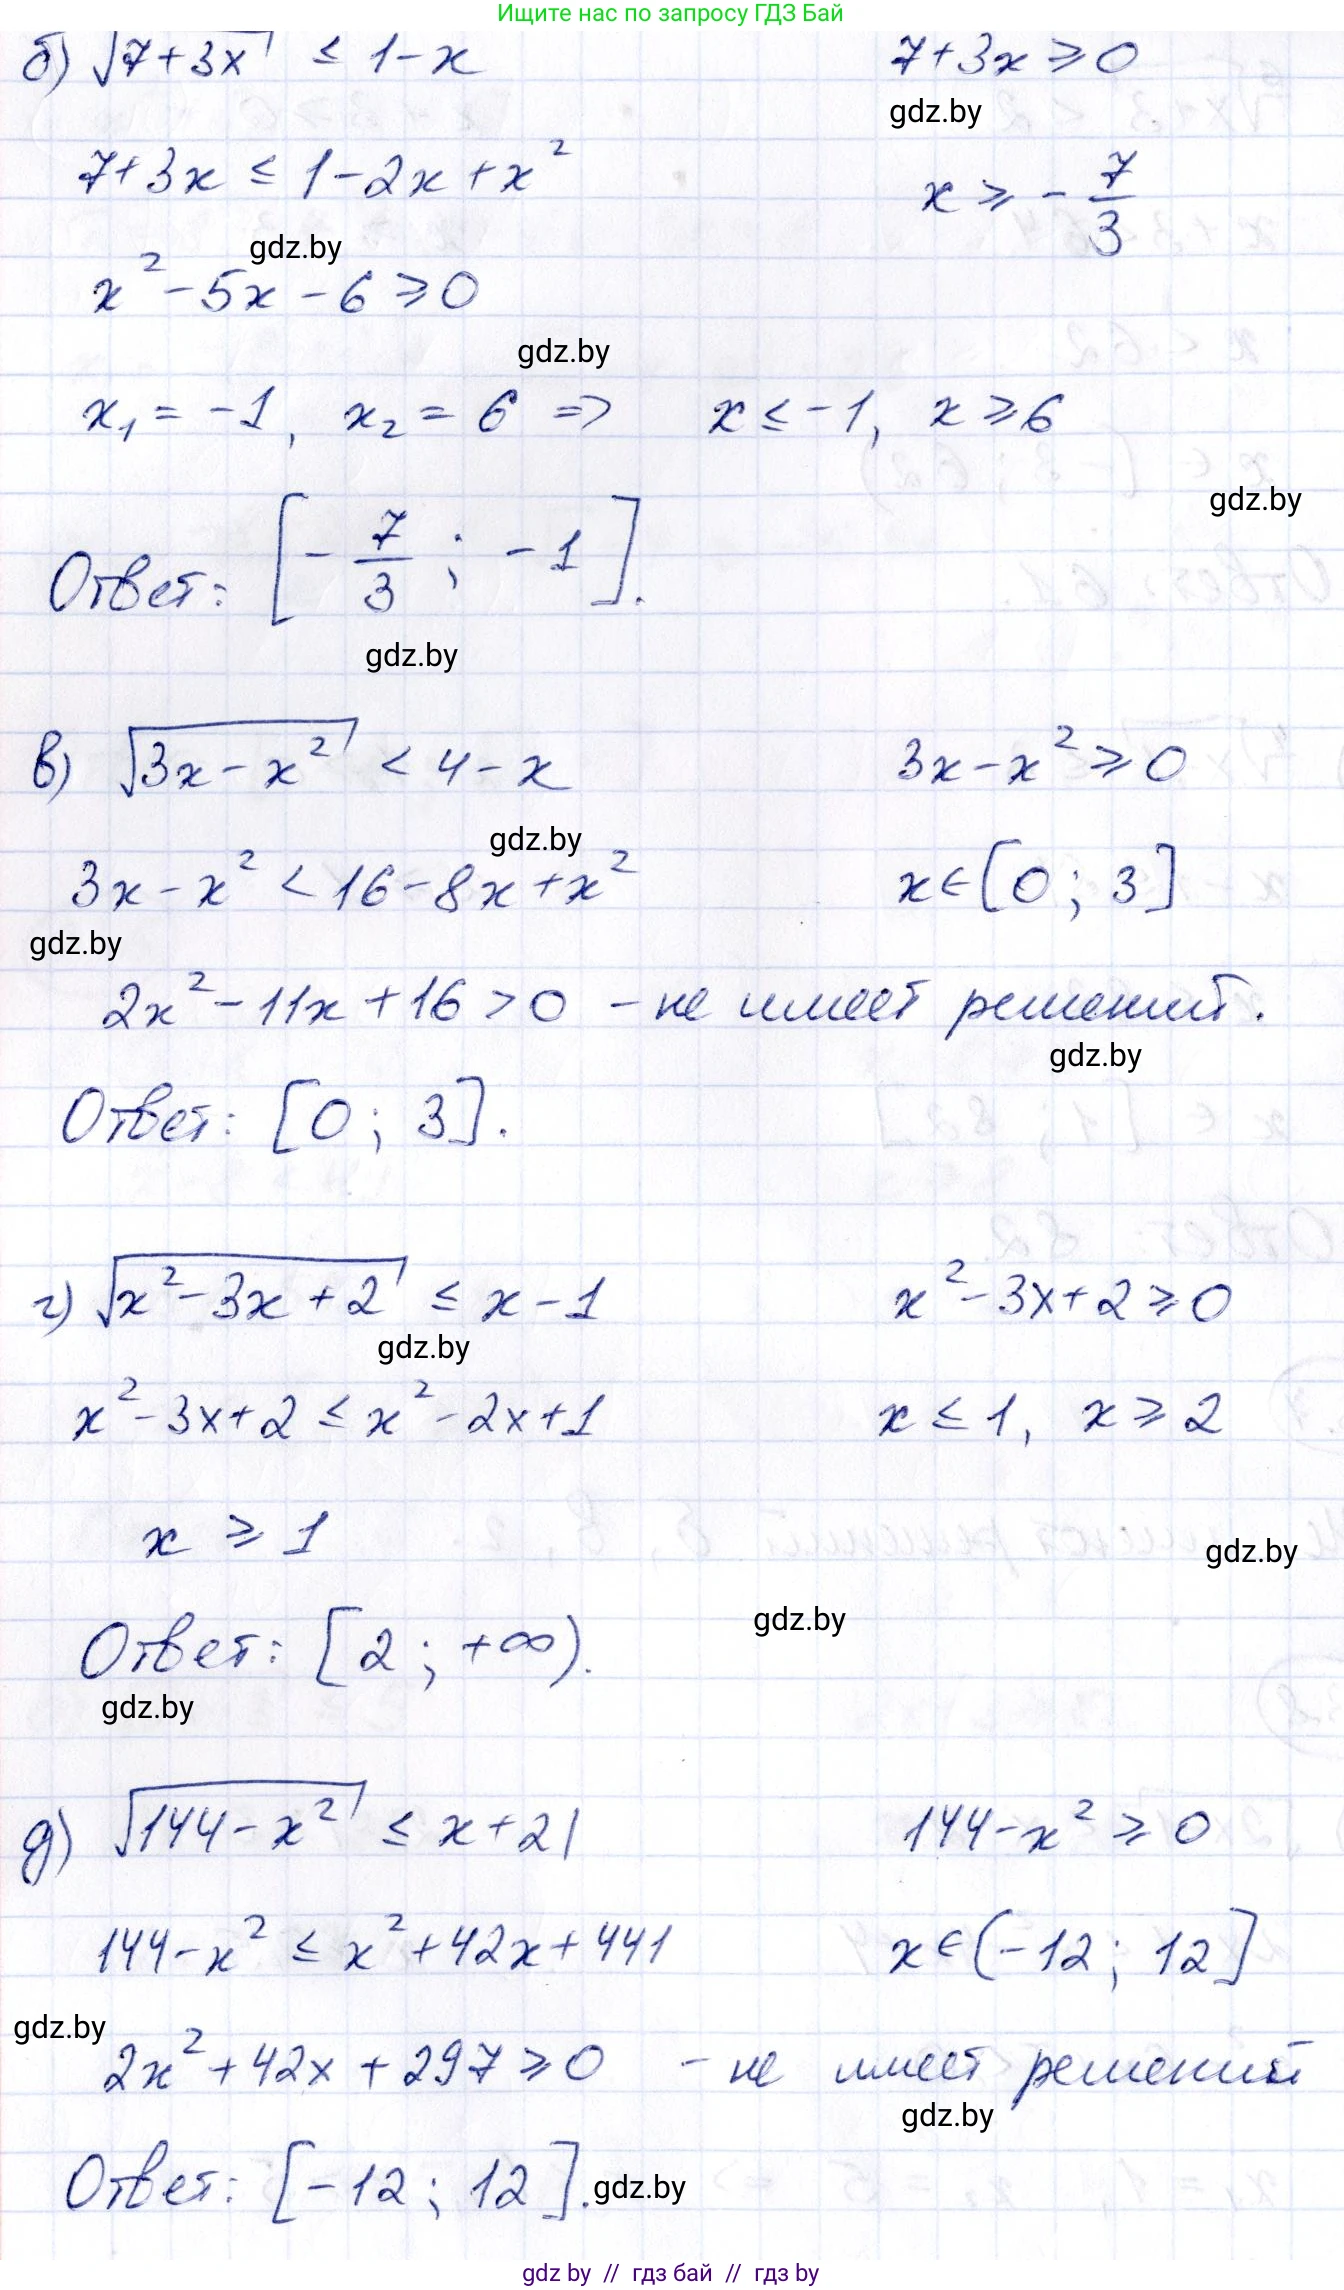 Ищите нас по запросу ГДЗ Бай
б) √(7+3x) ≤ 1-x    7+3x ≥ 0
gdz.by
7+3x ≤ 1-2x+x²    x ≥ -7/3
gdz.by
x²-5x-6 ≥ 0
gdz.by
x₁ = -1, x₂ = 6 => x ≤ -1, x ≥ 6
gdz.by
Ответ: [-7/3; -1].
gdz.by
в) √(3x-x²) < 4-x    3x-x² ≥ 0
gdz.by
3x-x² < 16-8x+x²    x∈[0; 3]
gdz.by
2x²-11x+16 > 0 - не имеет решений.
gdz.by
Ответ: [0; 3].
г) √(x²-3x+2) ≤ x-1    x²-3x+2 ≥ 0
gdz.by
x²-3x+2 ≤ x²-2x+1    x ≤ 1, x ≥ 2
x ≥ 1
gdz.by
gdz.by
Ответ: [2; +∞).
gdz.by
д) √(144-x²) ≤ x+21    144-x² ≥ 0
144-x² ≤ x²+42x+441    x∈(-12; 12]
gdz.by
2x²+42x+297 ≥ 0 - не имеет решений
gdz.by
Ответ: [-12; 12].
gdz.by
gdz by // гдз бай // гдз by